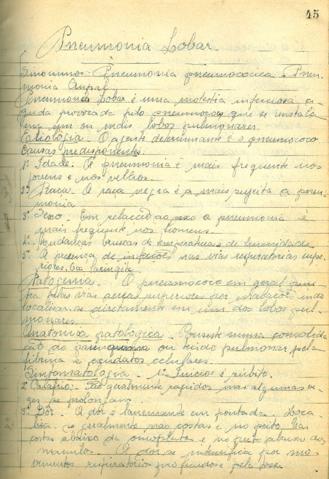 45
Pneumonia Lobar
Sinonimos: Pneumonia pneumococica e Pneu-
monia
Pneumonia Lobar é uma molestia infecciosa a-
guda provocada pelo pneumococo que se instala
em um ou mais lobos pulmonares.
Etiologia: O agente determinante é o pneumococo
Causas predisponentes:
1º Idade: A pneumonia é mais frequente nos
jovens e nos velhos
2º Raca: A raça negra é a mais sujeita a pneu-
monia
3º Sexo: Em relação ao sexo a pneumonia é
mais frequente nos homens.
4º Mudanças bruscas de temperatura de humidade
5º A presença de infecções nas vias respiratorias supe-
riores. Ex: laringite
Patogenia: O pneumococo em geral pene-
tra pelas vias aereas superiores
localizar-se diretamente em um dos lobos pul-
monares.
Anatomia patologica:
do tecido pulmonar pela
fibrina e exsudatos celulares.
Sintomatologia: 1º Inicio: é súbito.
2º Calafrio: São geralmente rapidos mas algumas ve-
zes se prolongam
3º Dôr: A dôr é lancinante em pontada. Loca-
liza-se geralmente nas costas e no peito. Nas
costas abaixo da omoplata e no peito abaixo do
mamilo. A dôr se intensifica por mo-
vimentos respiratórios profundos e pela tosse